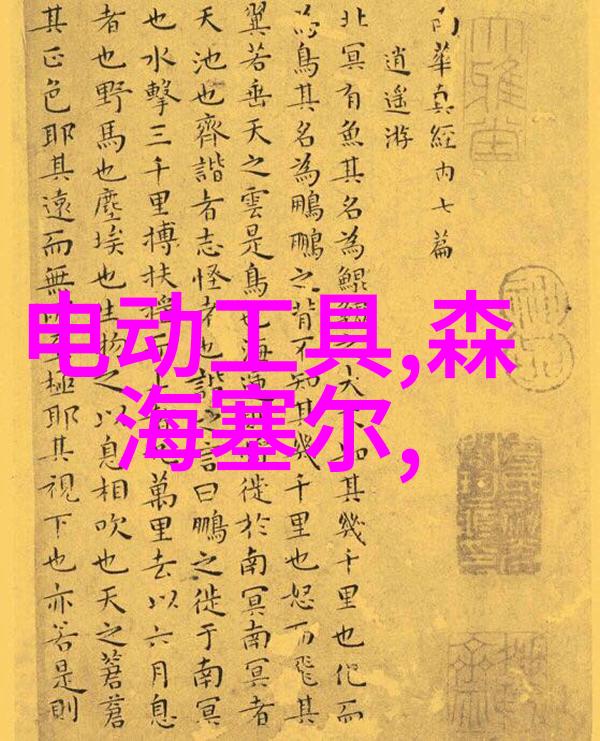 電动工具,森
海塞尔,
南華真經内七篇
逍遥游
北冥有魚其名為鯤 大 知其幾千里也化而
為鳥其名為鵬鵬之背不知其幾千里也怒而飛其
翼若垂天之雲是鳥也海運 徙於南冥南冥者
天池也齊諧者志怪者也諧之言曰鵬之徙于南冥
也水擊三千里搏扶搖而上 萬里去以六月息
者也野馬也塵埃也生物之以息相吹也天之蒼蒼
其正色耶其遠而無 至極耶其視下也亦若是則
大雅堂
神品